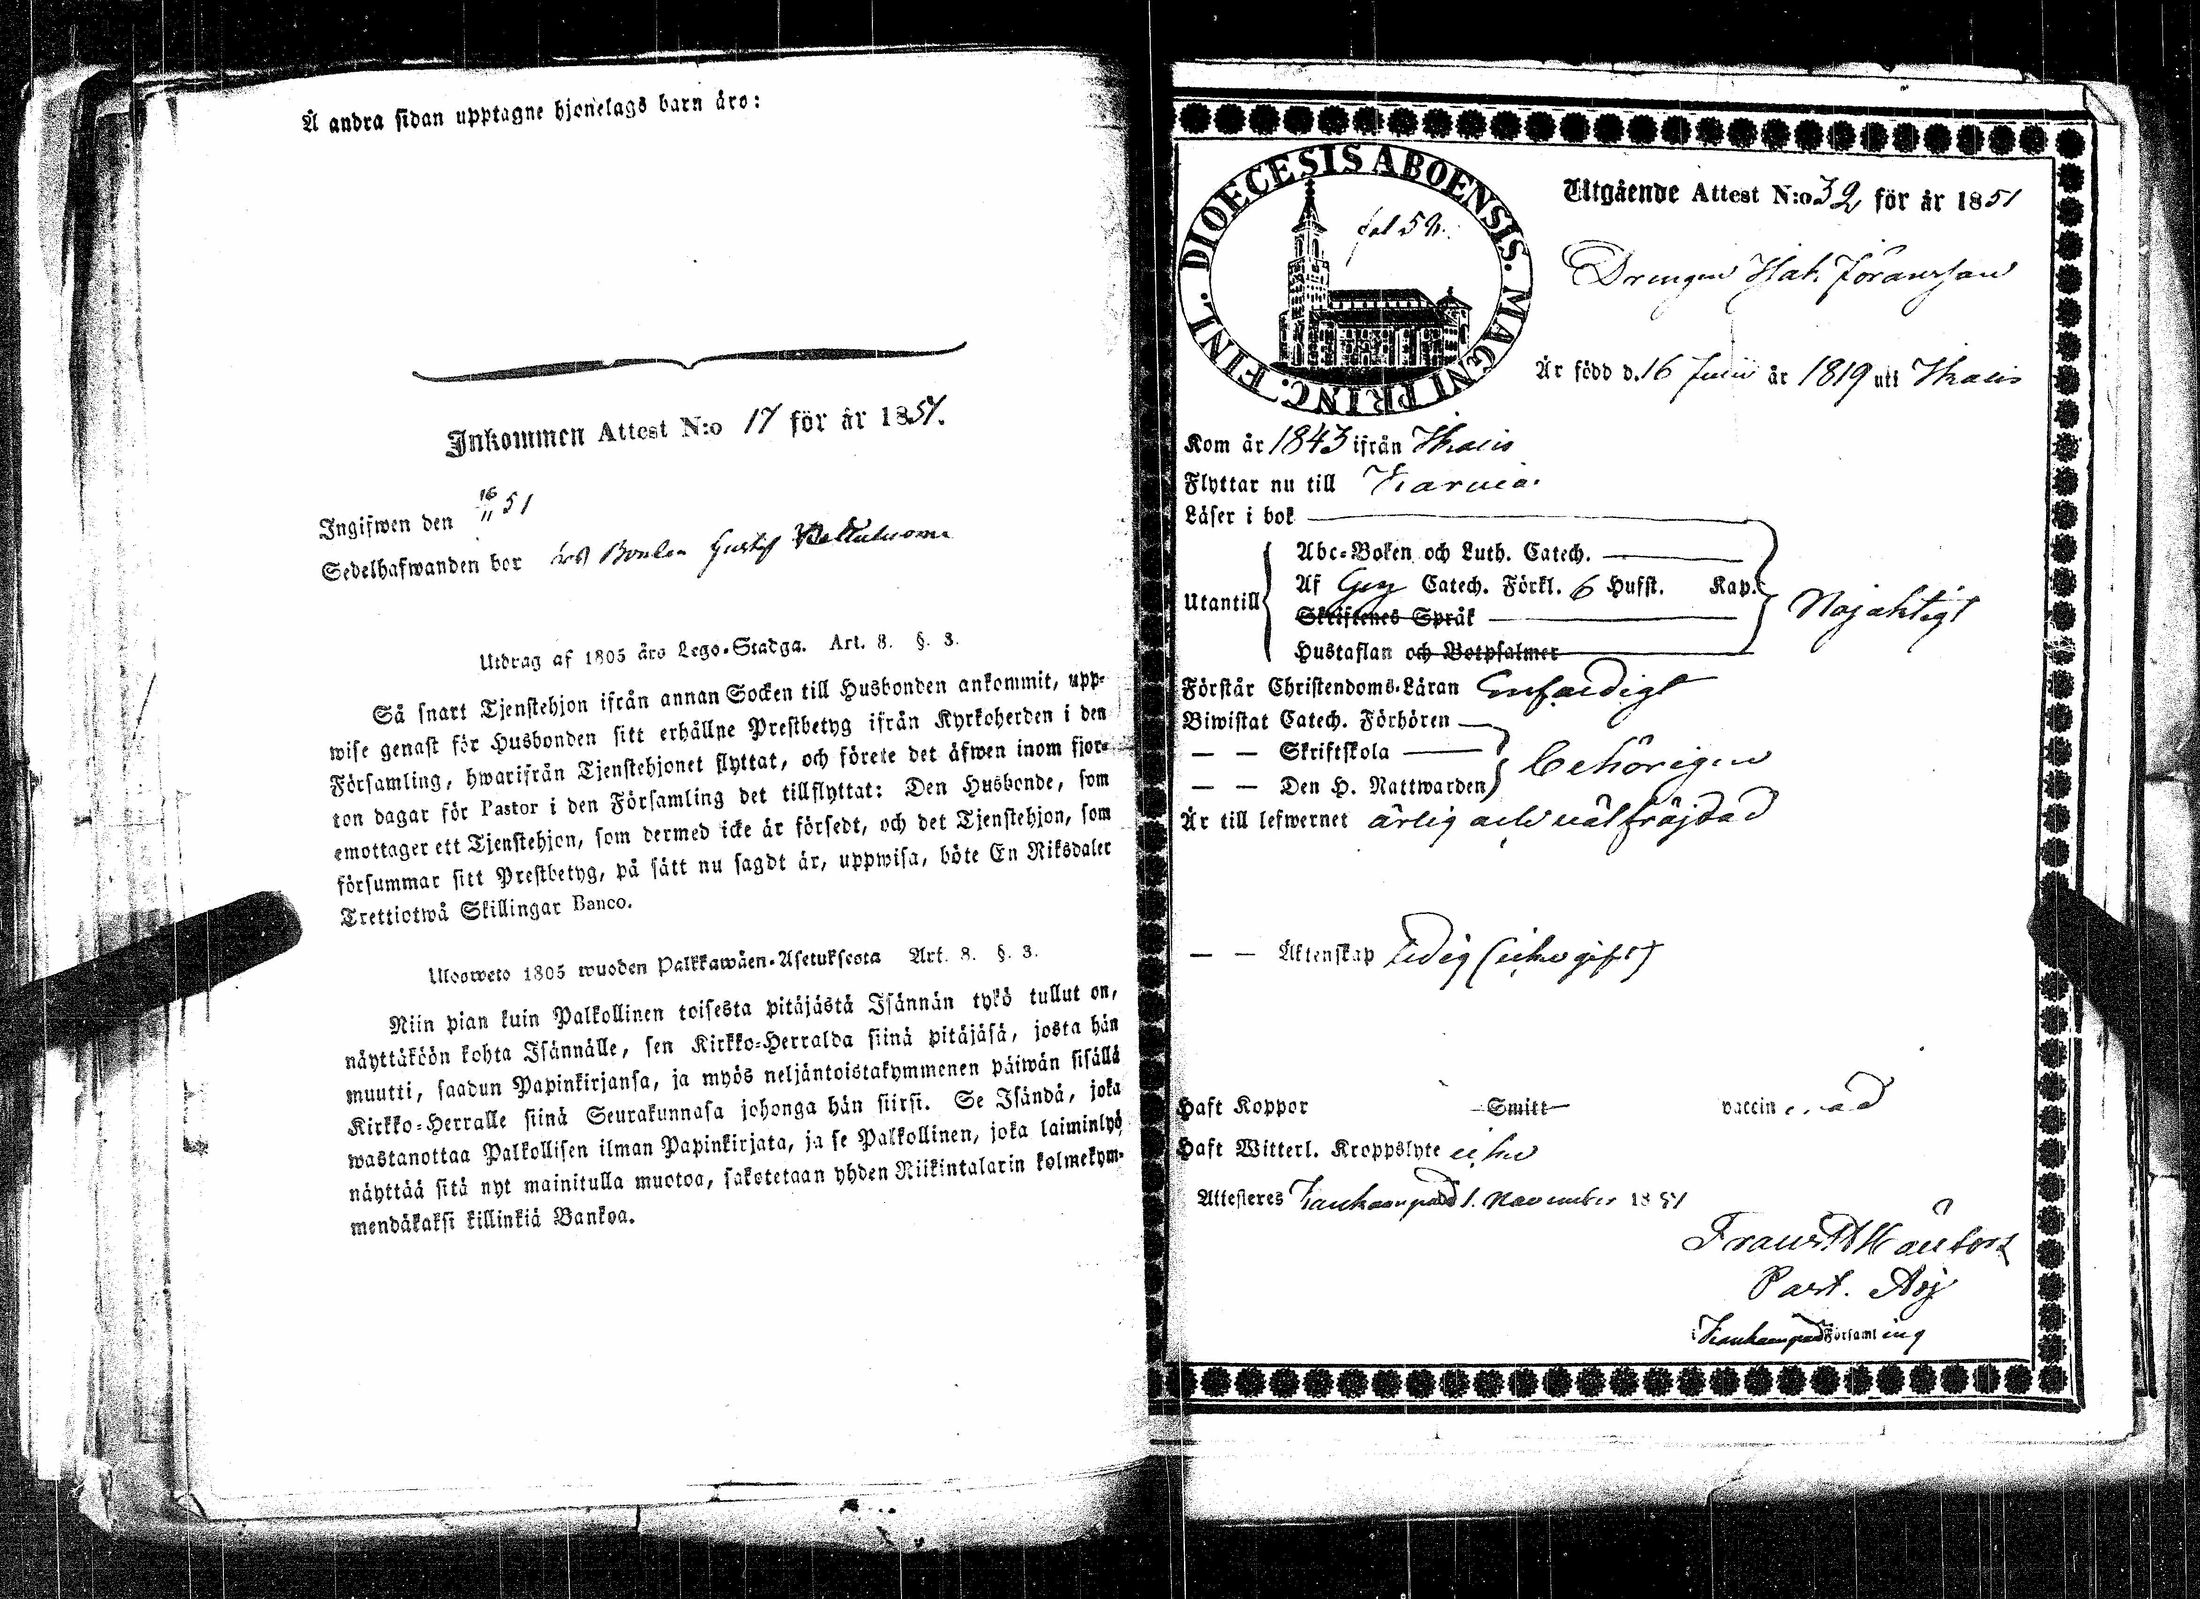 Å andra sidan upptagne hjonelags barn äro:
Inkommen Attest N:o 17 för år 1851.
Ingifwen den 16/11 51
Sedelhafwanden bor hos Bonden Gustaf
Utdrag af 1805 års Lego-Stadga. Art. 8. §. 3.
Så snart Tjenstehjon ifrån annan Socken till Husbonden ankommit, upp-
wise genast för Husbonden sitt erhållne Prestbetyg ifrån Kyrkoherden i den
Församling, hwarifrån Tjenstehjonet flyttat, och förete det äfwen inom fjor-
ton dagar för Pastor i den Församling det tillflyttat: Den Husbonde, som
emottager ett Tjenstehjon, som dermed icke är försedt, och det Tjenstehjon, som
försummar sitt Prestbetyg, på sätt nu sagdt är, uppwisa, böte En Riksdaler
Trettiotwå Skillingar Banco.
Ulosweto 1805 wuoden Palkkawäen-Asetuksesta Art. 8. §. 3.
Niin pian kuin Palkollinen toisesta pitäjästä Isännän tykö tullut on,
näyttäköön kohta Isännälle, sen Kirkko-Herralda siinä pitäjäsä, josta hän
muutti, saadun Papinkirjansa, ja myös neljäntoistakymmenen päiwän sisällä
Kirkko-Herralle siinä Seurakunnasa johonga hän siirsi. Se Isändä, joka
wastanottaa Palkollisen ilman Papinkirjata, ja se Palkollinen, joka laiminlyö
näyttää sitä nyt mainitulla muotoa, sakotetaan yhden Riikintalarin kolmekym-
mendäkaksi killinkiä Bankoa.
DIOECESIS ABOENSIS. MAGNI PRINC. FINL.
fol 52.
Utgående Attest N:o 32 för år 1851
Drengen Isak Jöransson
Är född d. 16 Junii år 1819 uti Ikalis
Kom år 1843 ifrån Ikalis
Flyttar nu till Karvia.
Läser i bok
Utantill
Abc-Boken och Luth. Catech.
Af Catech. Förkl. 6 Hufst. Kap.
Skriftenes Språk
Hustaflan och Botpsalmer
Nöjaktigt
Förstår Christendoms-Läran Enfaldigt
Biwistat Catech. Förhören
— — Skriftskola
— — Den H. Nattwarden
behörigen
Är till lefwernet ärlig och välfräjdad
— — Äktenskap ledig (icke gift)
Haft Koppor Smitt vaccinerad
Haft Witterl. Kroppslyte icke
Attesteres Kankaanpää d 1. November 1851
Past. Adj
i Kankaanpää Församling